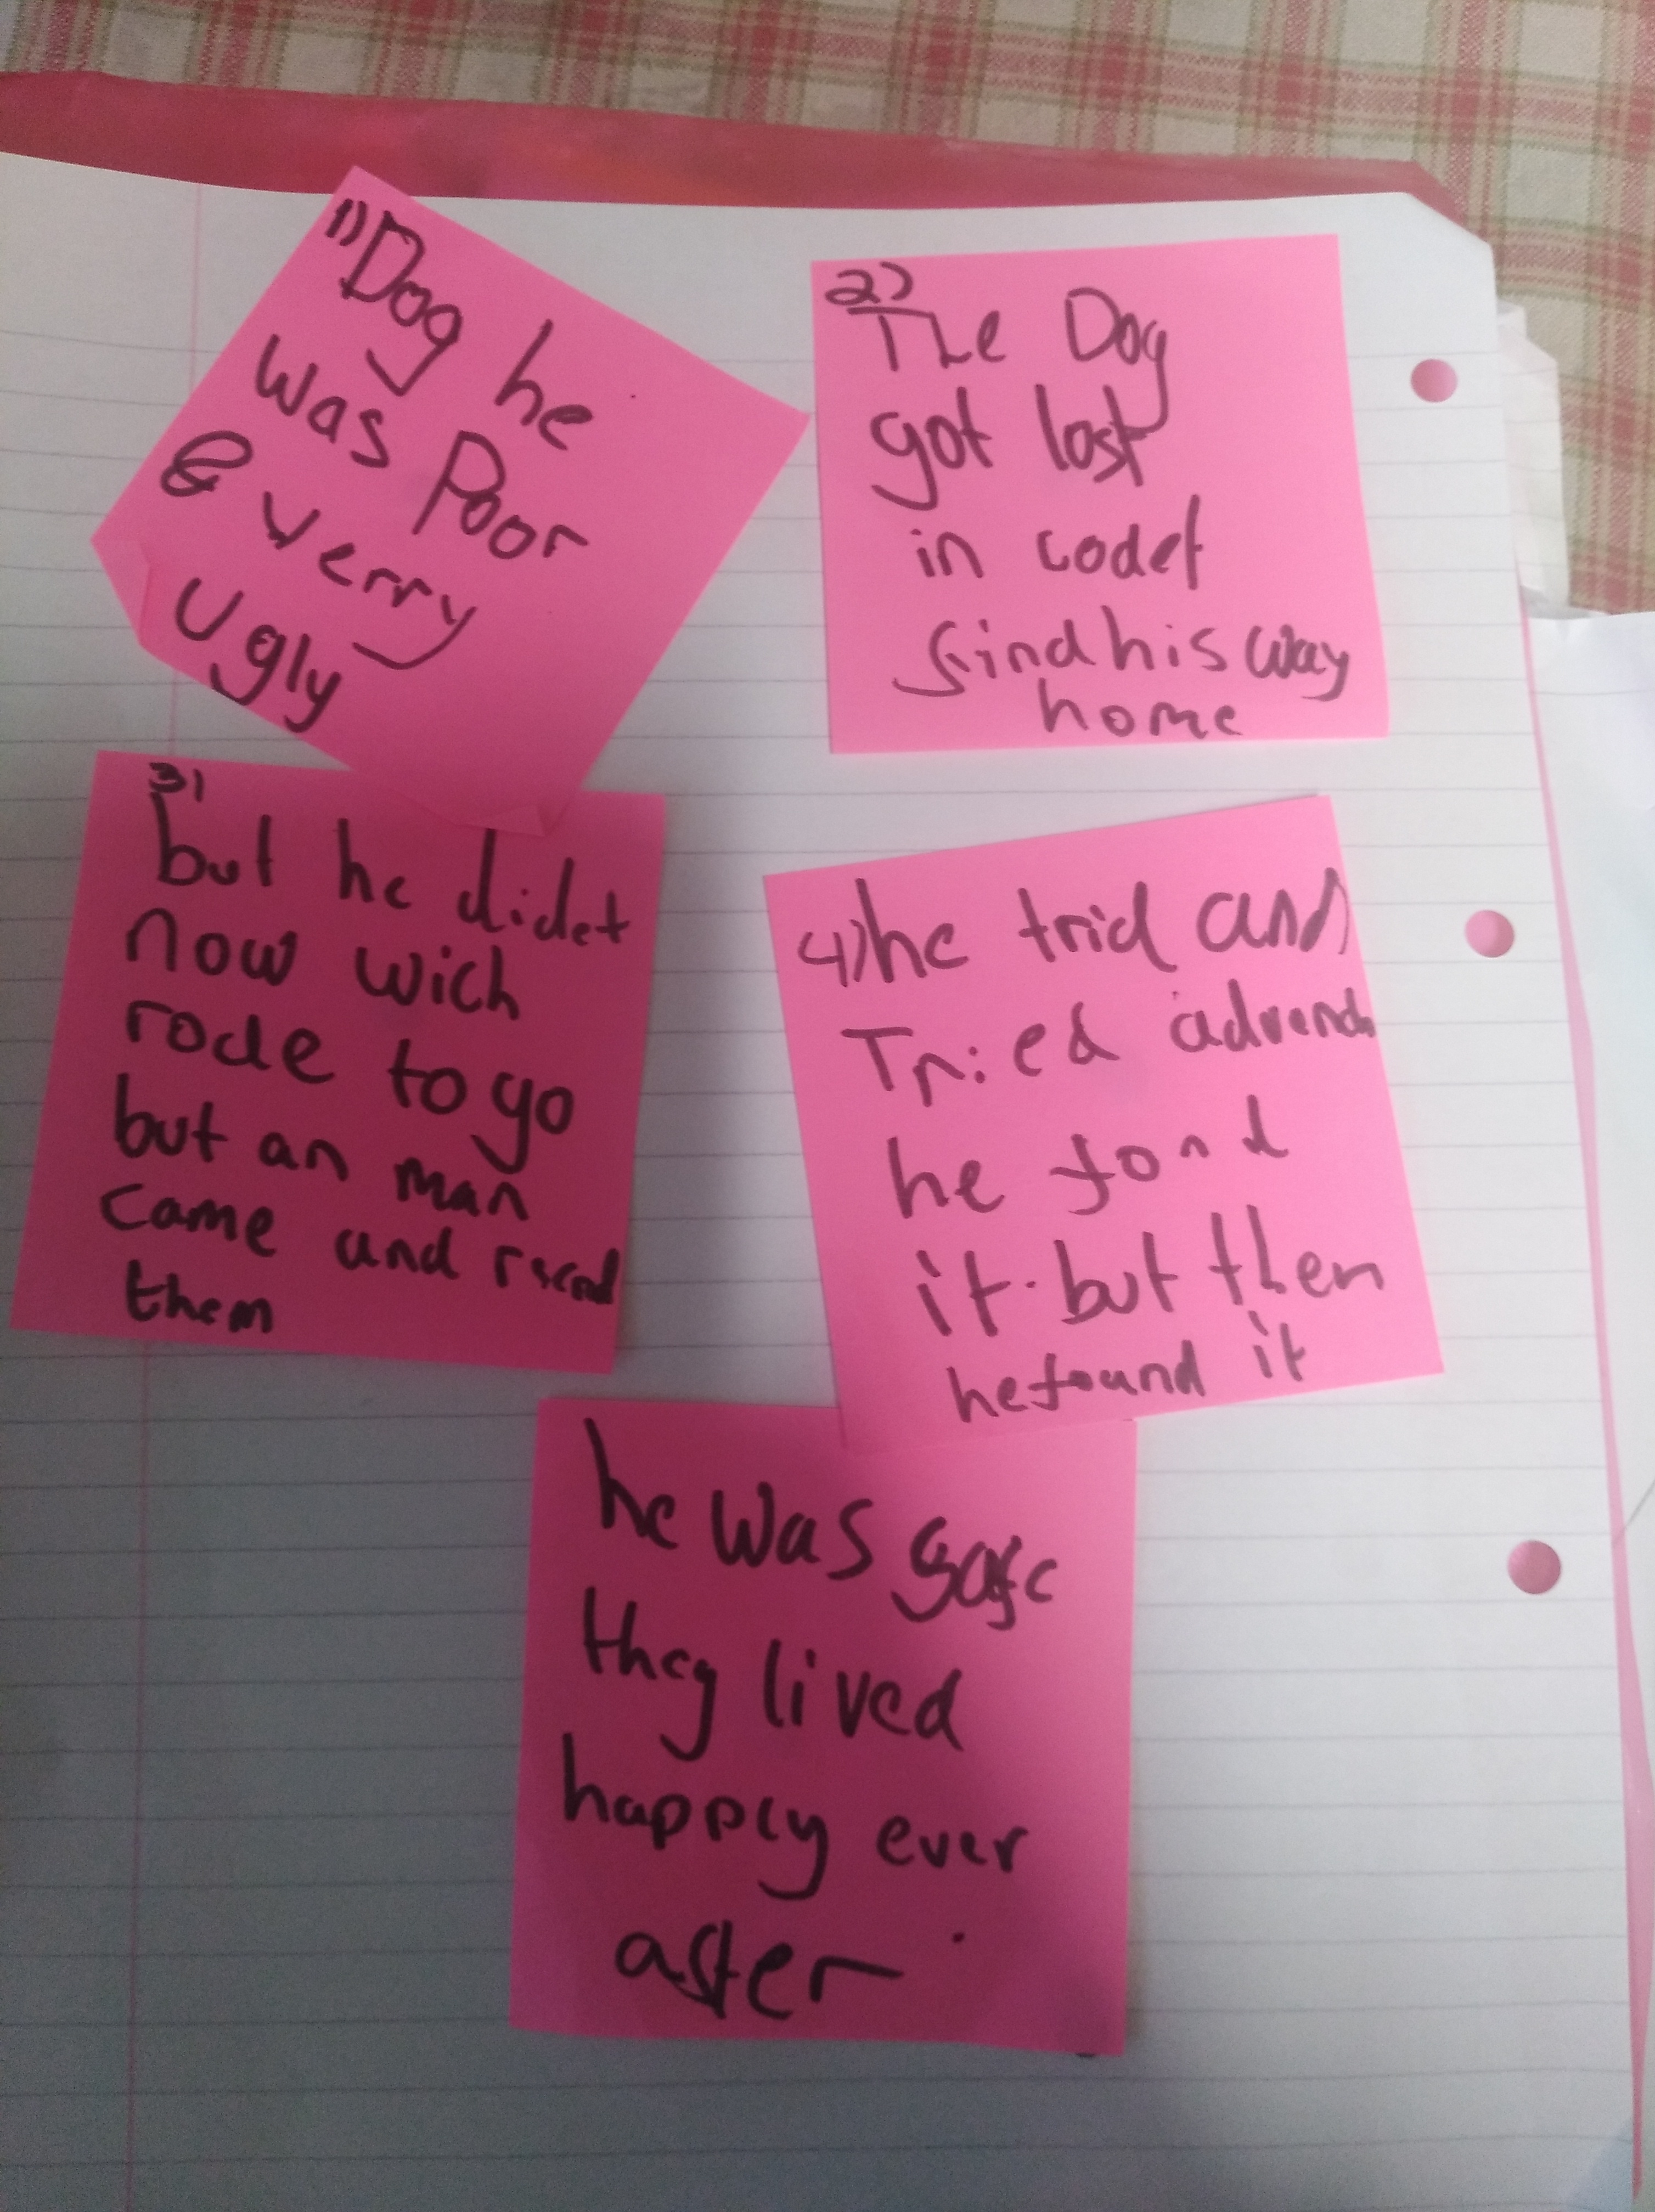 1) Dog he
was Poor
& verry
Ugly
2) The Dog
got lost
in codet
find his way
home
3) but he didet
now wich
rode to go
but an man
came and
them
4) he trid and
Tried
he fond
it. but then
he found it
he was safe
they lived
happly ever
after